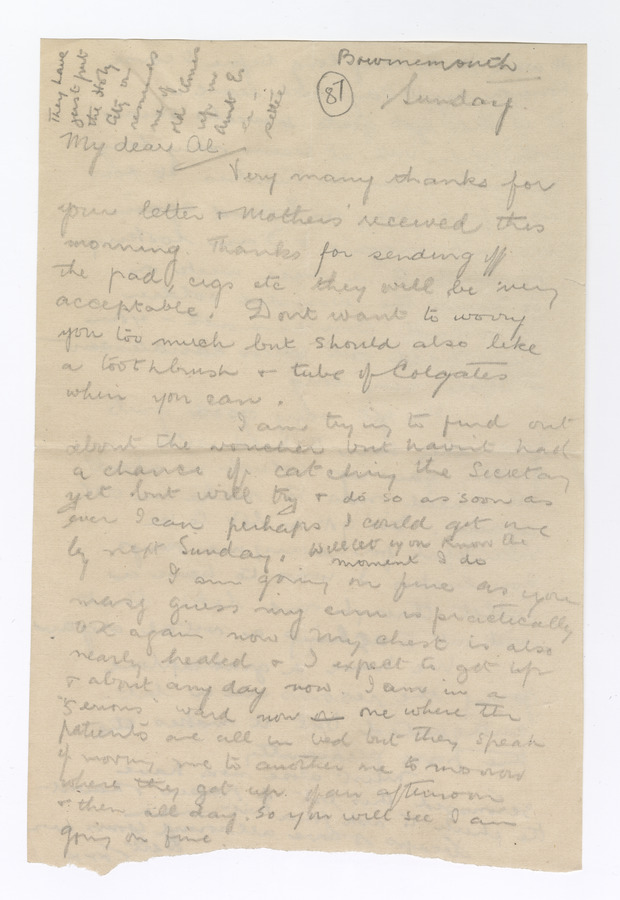 Bournemouth
81
Sunday.
They have
just put
the Holy
City on
reminds
me of
old times
up in
Aunt
My dear Al.
Very many thanks for
your letter & Mothers received this
morning. Thanks for sending off
the pad, cigs etc they will be very
acceptable. Dont want to worry
you too much but should also like
a toothbrush & tube of Colgates
when you can.
I am trying to find out
about the voucher but havint had
a chance of catching the Secretary
yet but will try & do so as soon as
ever I can perhaps I could get one
by next Sunday. Will let you know the
moment I do
I am going on fine as you
may guess my arm is practically
OK again now My chest is also
nearly healed & I expect to get up
& about any day now. I am in a
"serious" ward now one where the
patients are all in bed but they speak
of moving me to another one tomorrow
where they get up of an afternoon
& then all day. So you will see I am
going on fine